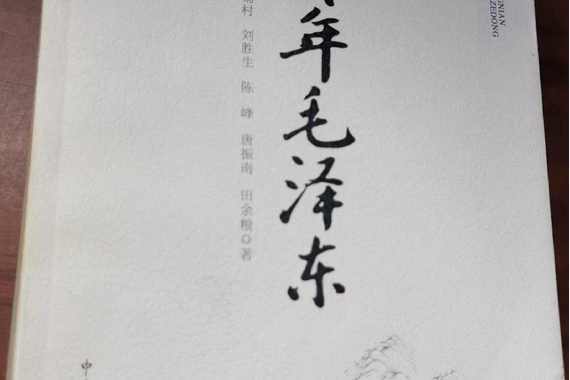 年毛泽东
村 刘胜生 陈 峰 唐振南 田余粮◎著
NIAN
ZEDONG
中